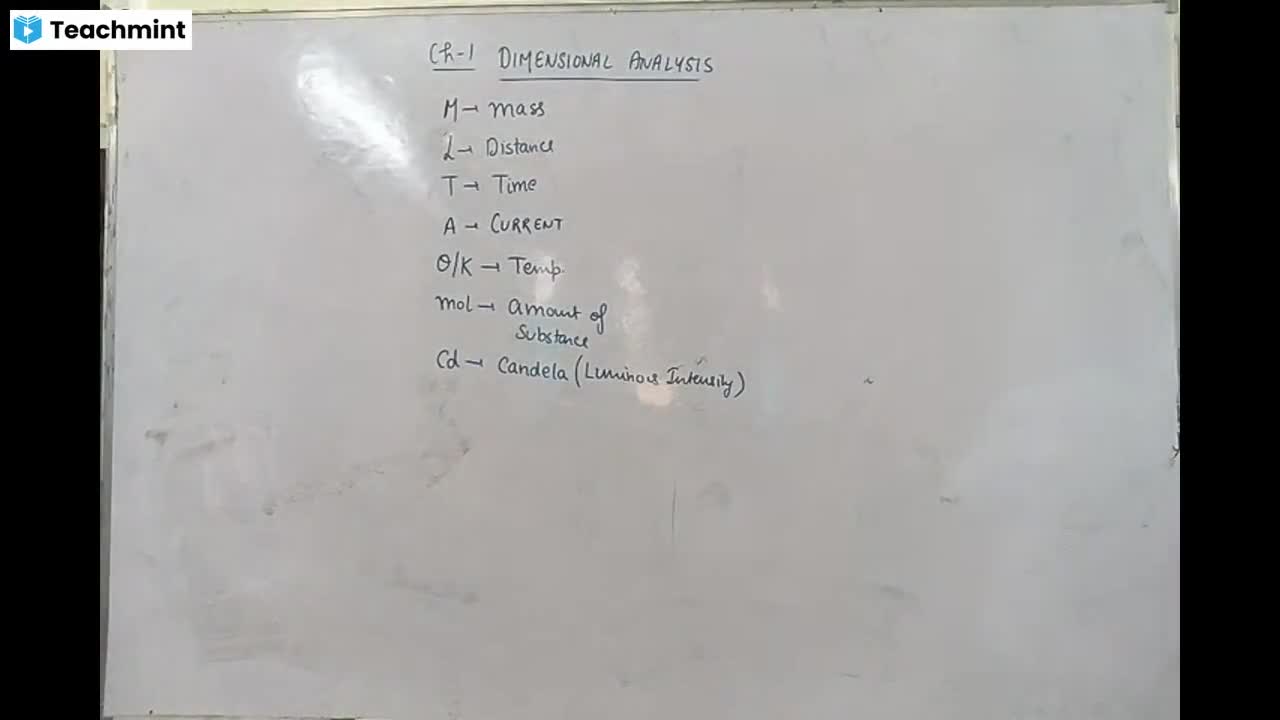 Teachmint
Ch-1 DIMENSIONAL ANALYSIS
M → mass
L → Distance
T → Time
A → CURRENT
θ/K → Temp.
mol → amount of
Substance
Cd → Candela (Luminous Intensity)